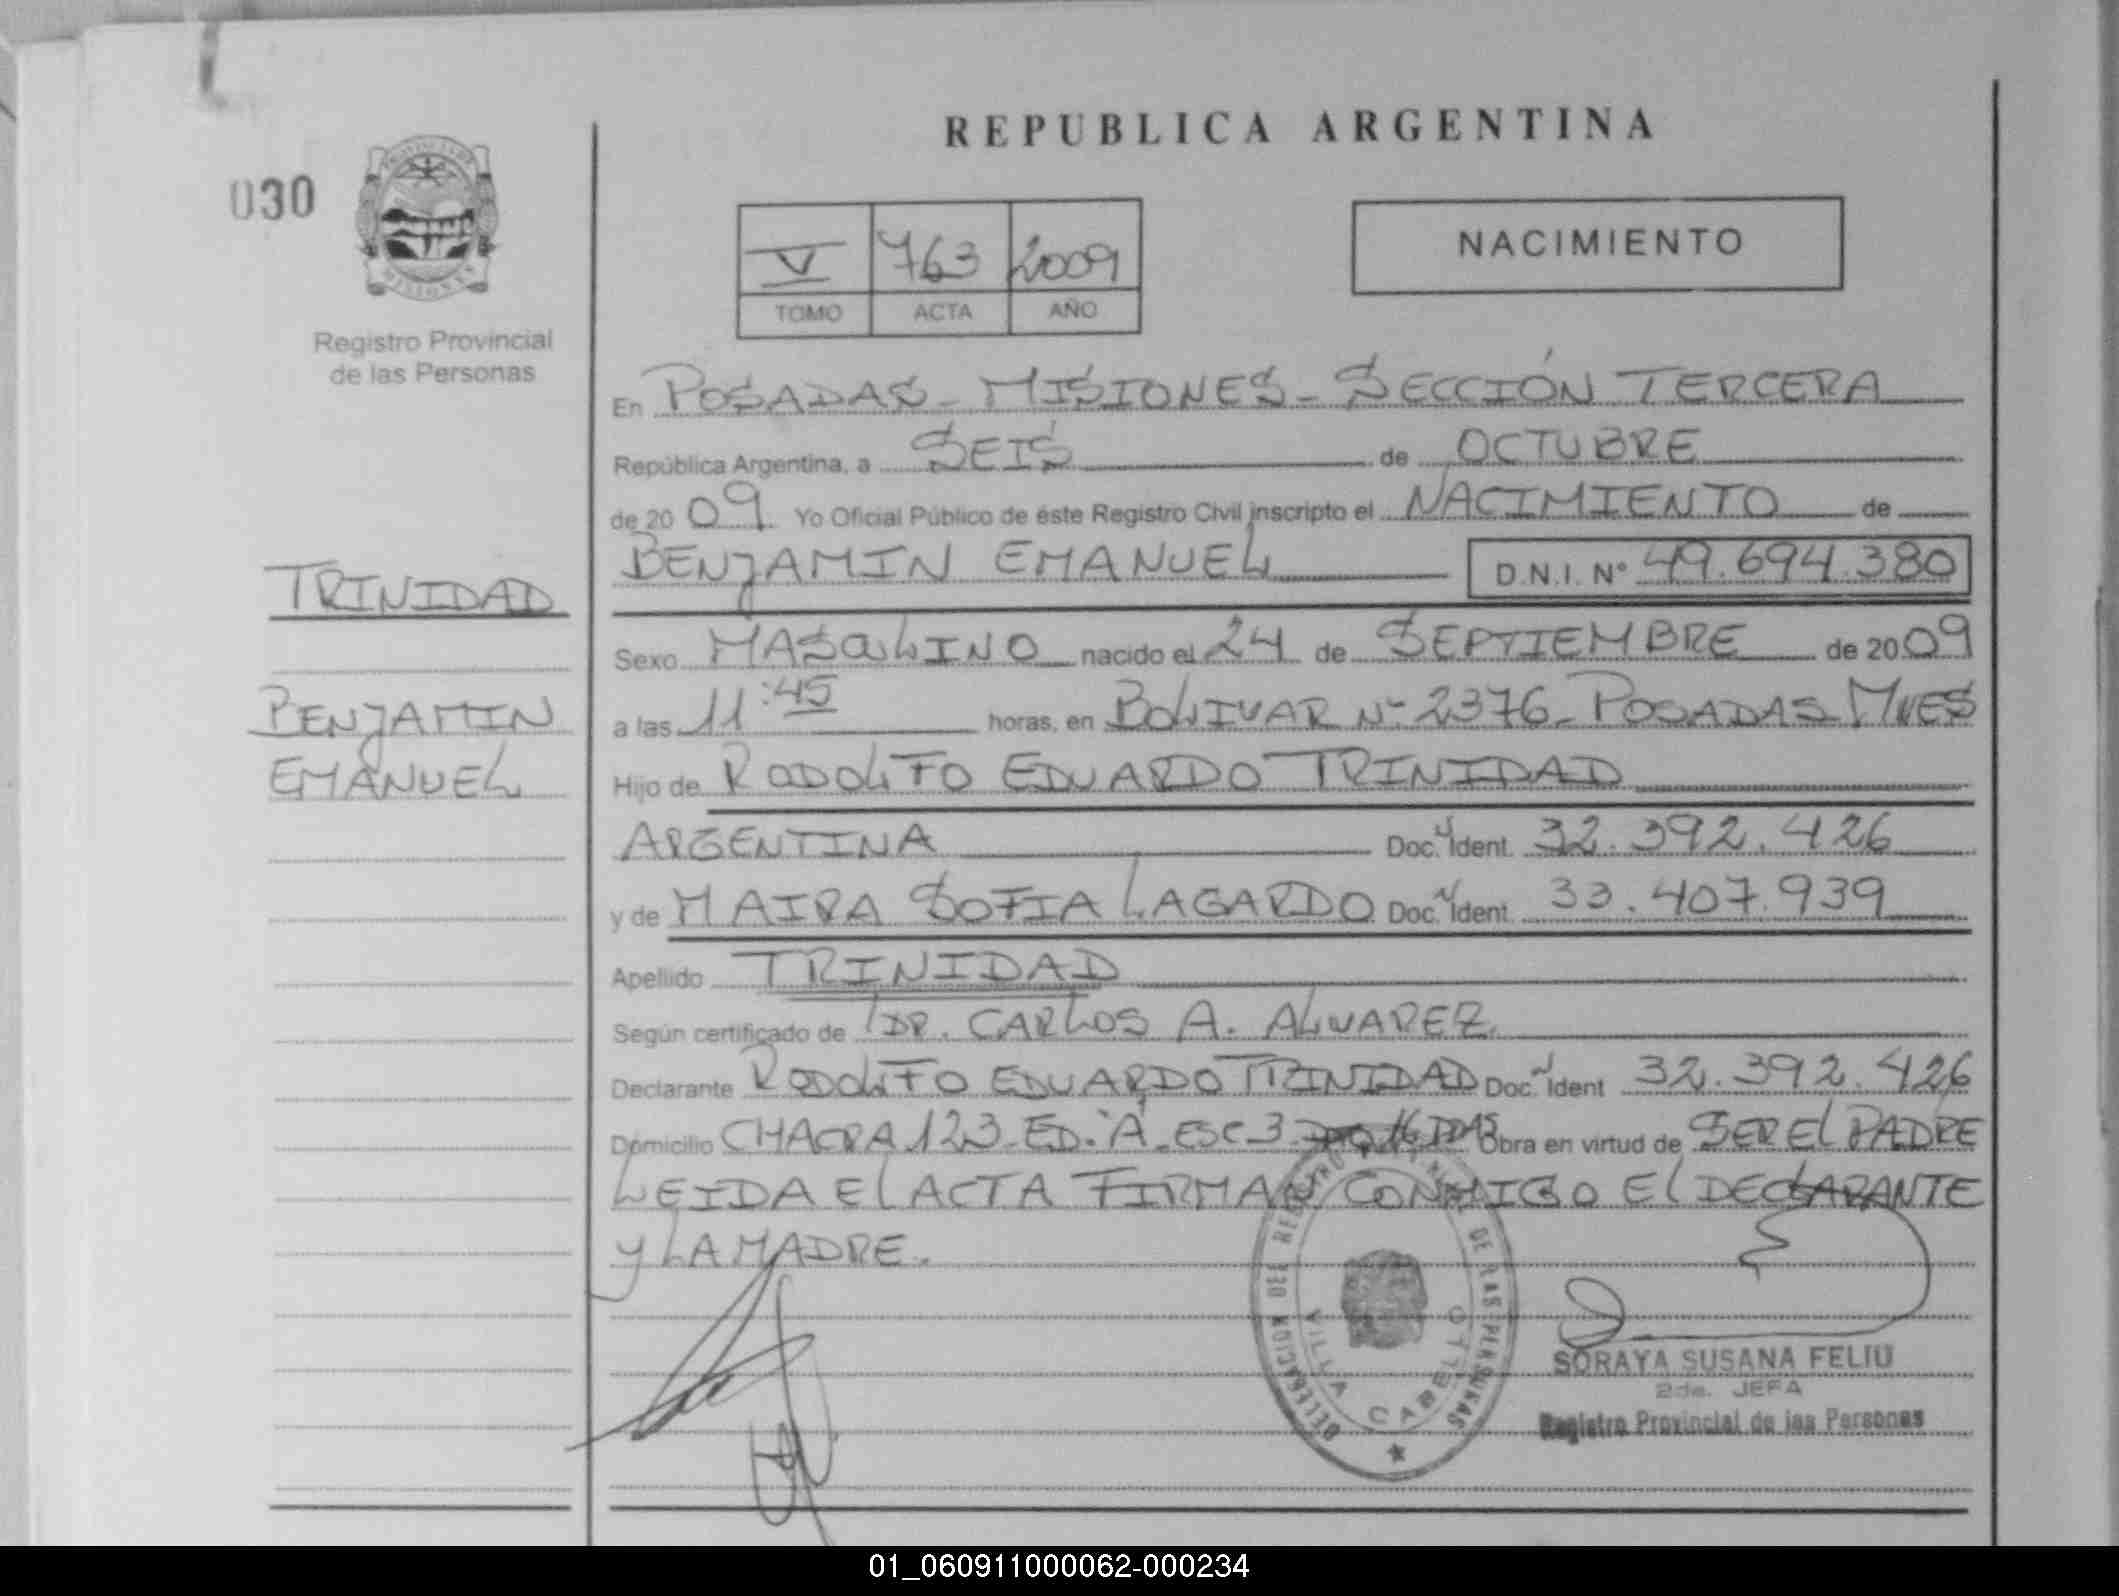 REPUBLICA ARGENTINA
030
PROVINCIA DE
MISIONES
Registro Provincial
de las Personas
V 763 2009
TOMO ACTA AÑO
NACIMIENTO
En POSADAS - MISIONES - SECCIÓN TERCERA
República Argentina, a SEIS de OCTUBRE
de 2009 Yo Oficial Público de éste Registro Civil inscripto el NACIMIENTO de
BENJAMIN EMANUEL D.N.I. N° 49.694.380
TRINIDAD
BENJAMIN
EMANUEL
Sexo MASCULINO nacido el 24 de SEPTIEMBRE de 2009
a las 11:45 horas, en BOLIVAR N° 2376 - POSADAS MNES
Hijo de RODOLFO EDUARDO TRINIDAD
ARGENTINA Doc. Ident. 32.392.426
y de MAIRA SOFIA LAGARDO Doc. Ident. 33.407.939
Apellido TRINIDAD
Según certificado de DR. CARLOS A. ALVAREZ
Declarante RODOLFO EDUARDO TRINIDAD Doc. Ident 32.392.426
Domicilio CHACRA 123 - ED. "A" - ESC - 3 Obra en virtud de SER EL PADRE
LEIDA EL ACTA FIRMAN CONMIGO EL DECLARANTE
Y LA MADRE.
DELEGACION 330 REGISTRO DE LAS PERSONAS
VILLA CABELLO
SORAYA SUSANA FELIU
2da. JEFA
Registro Provincial de las Personas
01_060911000062-000234